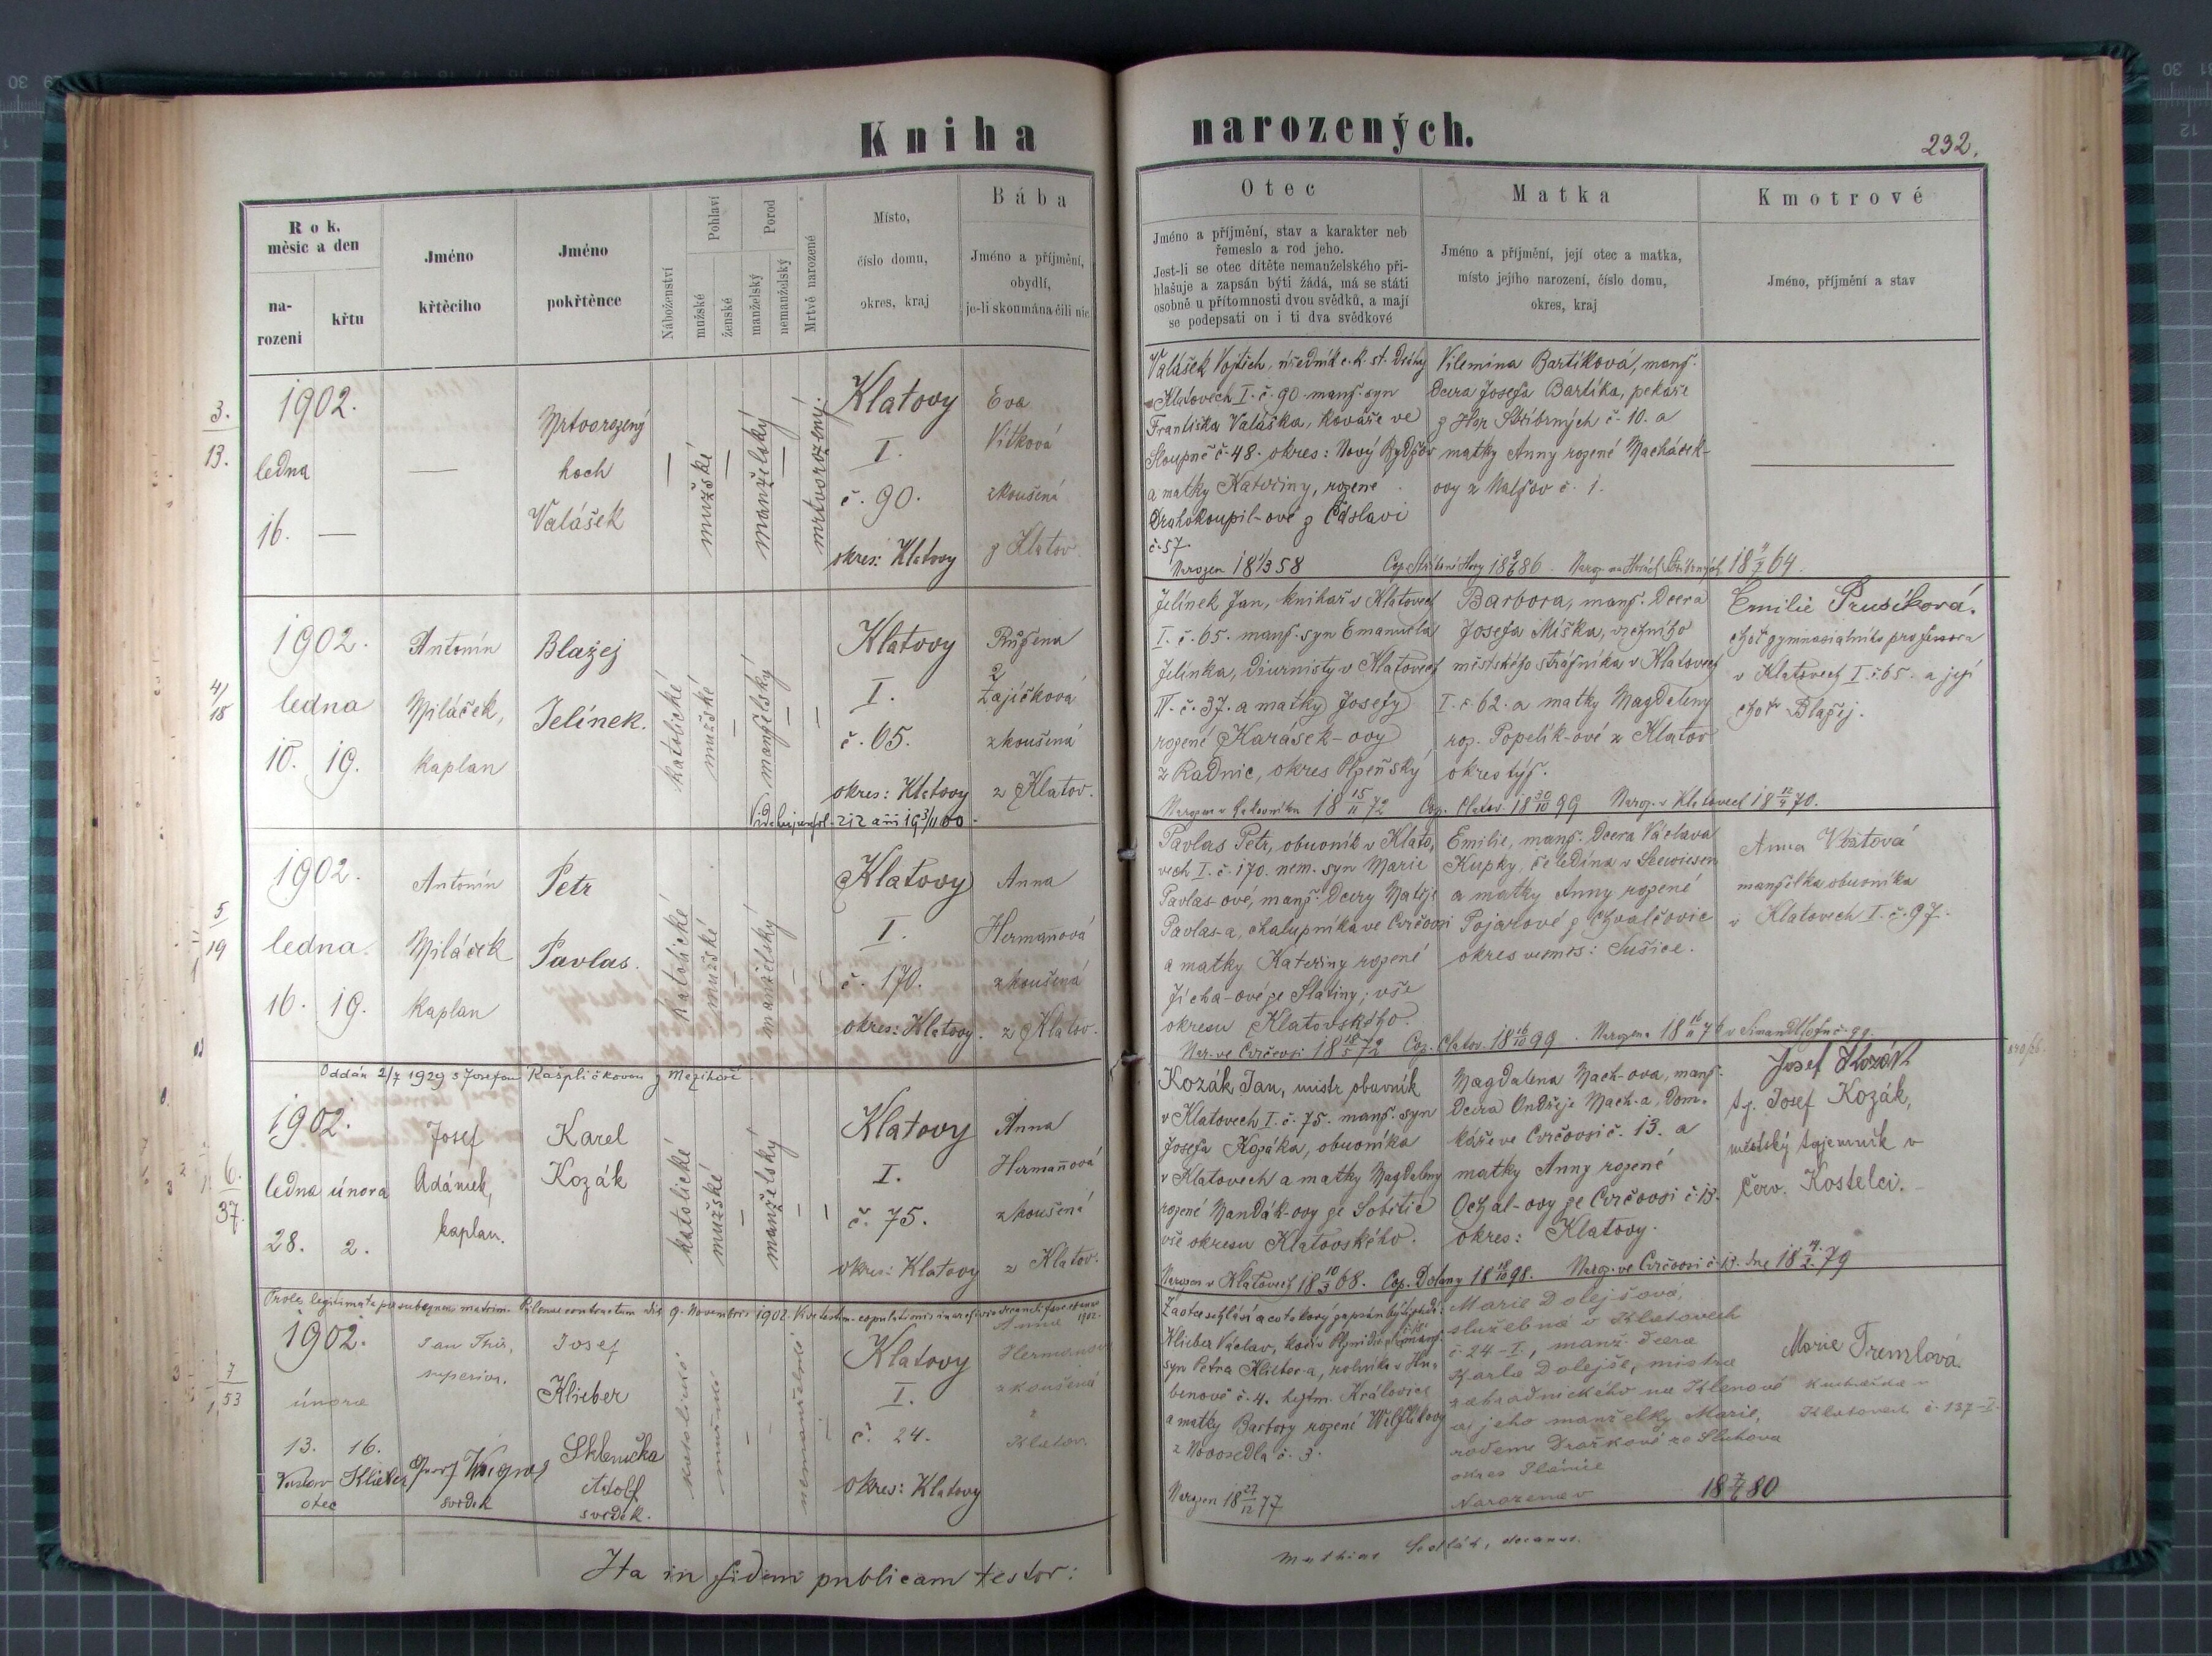 Kniha narozených.
232.
Rok, měsíc a den
na-
rození
křtu
Jméno
křtěcího
Jméno
pokřtěnce
Náboženství
Pohlaví
mužské
ženské
Porod
manželský
nemanželský
Mrtvě narozené
Místo,
číslo domu,
okres, kraj
Bába
Jméno a příjmění,
obydlí,
je-li zkoumána čili nic
Otec
Jméno a příjmění, stav a karakter neb
řemeslo a rod jeho.
Jest-li se otec dítěte nemanželského při-
hlašuje a zapsán býti žádá, má se státi
osobně u přítomnosti dvou svědků, a mají
se podepsati on i ti dva svědkové
Matka
Jméno a příjmění, její otec a matka,
místo jejího narození, číslo domu,
okres, kraj
Kmotrové
Jméno, příjmění a stav
3.
13.
1902.
ledna
16. —
—
Mrtvorozený
hoch
Valášek
—
mužské
—
manželský
—
mrtvorozený.
Klatovy
I.
č. 90.
okres: Klatovy
Eva
Vítková
zkoušená
z Klatov
Valášek Vojtěch, úředník c. k. st. dráhy
v Klatovech I. č. 90. manž. syn
Františka Valáška, kováře ve
Sloupně č. 48. okres: Nový Bydžov
a matky Kateřiny, rozené
Drahokoupil-ové z Čáslavi
č. 57
Vilemína Bartíková, manž.
dcera Josefa Bartíka, pekaře
z Hor Stříbrných č. 10. a
matky Anny rozené Macháček-
ovy z Nalžov č. 1.
Narozen 18 1/3 58
4/
18
1902.
ledna
10. 19.
Antonín
Miláček,
kaplan
Blažej
Jelínek.
katolické
mužské
—
manželský
—
—
Klatovy
I.
č. 65.
okres: Klatovy
Růžena
Zajíčková
zkoušená
z Klatov.
Jelínek Jan, knihař v Klatovech
I. č. 65. manž. syn Emanuela
Jelínka, diurnisty v Klatovech
IV. č. 37. a matky Josefy
rozené Karásek-ovy
z Radnic, okres Plzeňský
Barbora, manž. dcera
Josefa Míška, vrchního
městského strážníka v Klatovech
I. č. 62. a matky Magdaleny
roz. Popelík-ové z Klatov
okres týž.
Emilie Prusíková.
choť gymnasialního professora
v Klatovech I. č. 65. a její
choť Blažej.
Cop. Klatov. 18 30/10 99 Naroz. v Klatovech 18 12/9 70.
5
19
1902.
ledna.
16. 19.
Antonín
Miláček
kaplan
Petr
Pavlas.
katolické
mužské
—
manželský
—
—
Klatovy
I.
č. 170.
okres: Klatovy.
Anna
Hermanová
zkoušená
z Klatov.
Pavlas Petr, obuvník v Klato-
vech I. č. 170. nem. syn Marie
Pavlas-ové, manž. dcery Matěje
Pavlas-a, chalupníka ve Cvrčovsi
a matky Kateřiny rozené
Jícha-ové ze Slatiny; vše
okresu Klatovského.
Emilie, manž. dcera Václava
Kupky, čeledína v Seewiesen
a matky Anny rozené
Pojarové z Chvalčovic
okres vesměs: Sušice.
Anna
manželka obuvníka
v Klatovech I. č. 97.
Nar. ve Cvrčovsi 18 18/5 72 Cop. Klatov. 18 16/10 99. Narozena 18 16/11 76
Oddán 2/7 1929 s Josefou Raspličkovou z Mezihoří.
6.
37.
1902.
ledna února
28. 2.
Josef
Adámek,
kaplan.
Karel
Kozák
katolické
mužské
—
manželský
—
—
Klatovy
I.
č. 75.
okres: Klatovy
Anna
Hermanová
zkoušená
z Klatov.
Kozák Jan, mistr obuvník
v Klatovech I. č. 75. manž. syn
Josefa Kozáka, obuvníka
v Klatovech a matky Magdaleny
rozené Mandák-ovy ze Sobětic
vše okresu Klatovského.
Magdalena Mach-ova, manž.
dcera Ondřeje Mach-a, dom-
káře ve Cvrčovsi č. 13. a
matky Anny rozené
Ochal-ovy ze Cvrčovsi č. 13.
okres: Klatovy.
Josef Kozák
tz. Josef Kozák,
městský tajemník v
Červ. Kostelci.
Narozen v Klatovech 18 10/3 68. Cop. Dolany 18 18/10 98. Naroz. ve Cvrčovsi č. 13. dne 18 19/2 79
Proles legitimata per subsequens matrim. Pilsnae contractum die 9. Novembris 1902.
7
53
1902.
února
13. 16.
Jan
superior.
Josef
Klieber
katolické
mužské
—
—
nemanželské
—
Klatovy
I.
č. 24.
okres: Klatovy
Anna
Hermanová
zkoušená
z
Klatov.
Václav Klieber
otec
svědek
Sklenička
Adolf
svědek.
Za otce se hlásí a co takový zapsán býti žádá:
syn Petra Klieber-a, rolníka v Hu-
benově č. 4. hejtm. Kralovice
a matky Barbory rozené
z Novosedla č. 3.
Narozen 18 27/12 77
Marie Dolejšová,
služebná v Klatovech
č. 24-I., manž. dcera
Karla Dolejše, mistra
zahradnického na Klenové
a jeho manželky Marie,
rozené
okres Plánice
Narozena
Marie Tremlová.
Klatovech č. 137-I.
Ita in fidem publicam testor:
Mathias Sedlák, decanus.